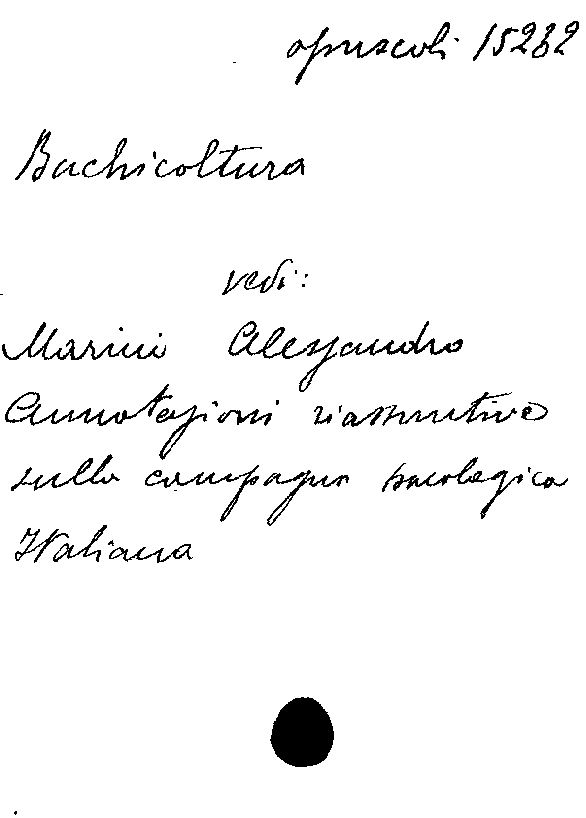 opuscoli 15232
Bachicoltura
vedi:
Marini Alessandro
Annotazioni riassuntive
sulla campagna bacologica
Italiana